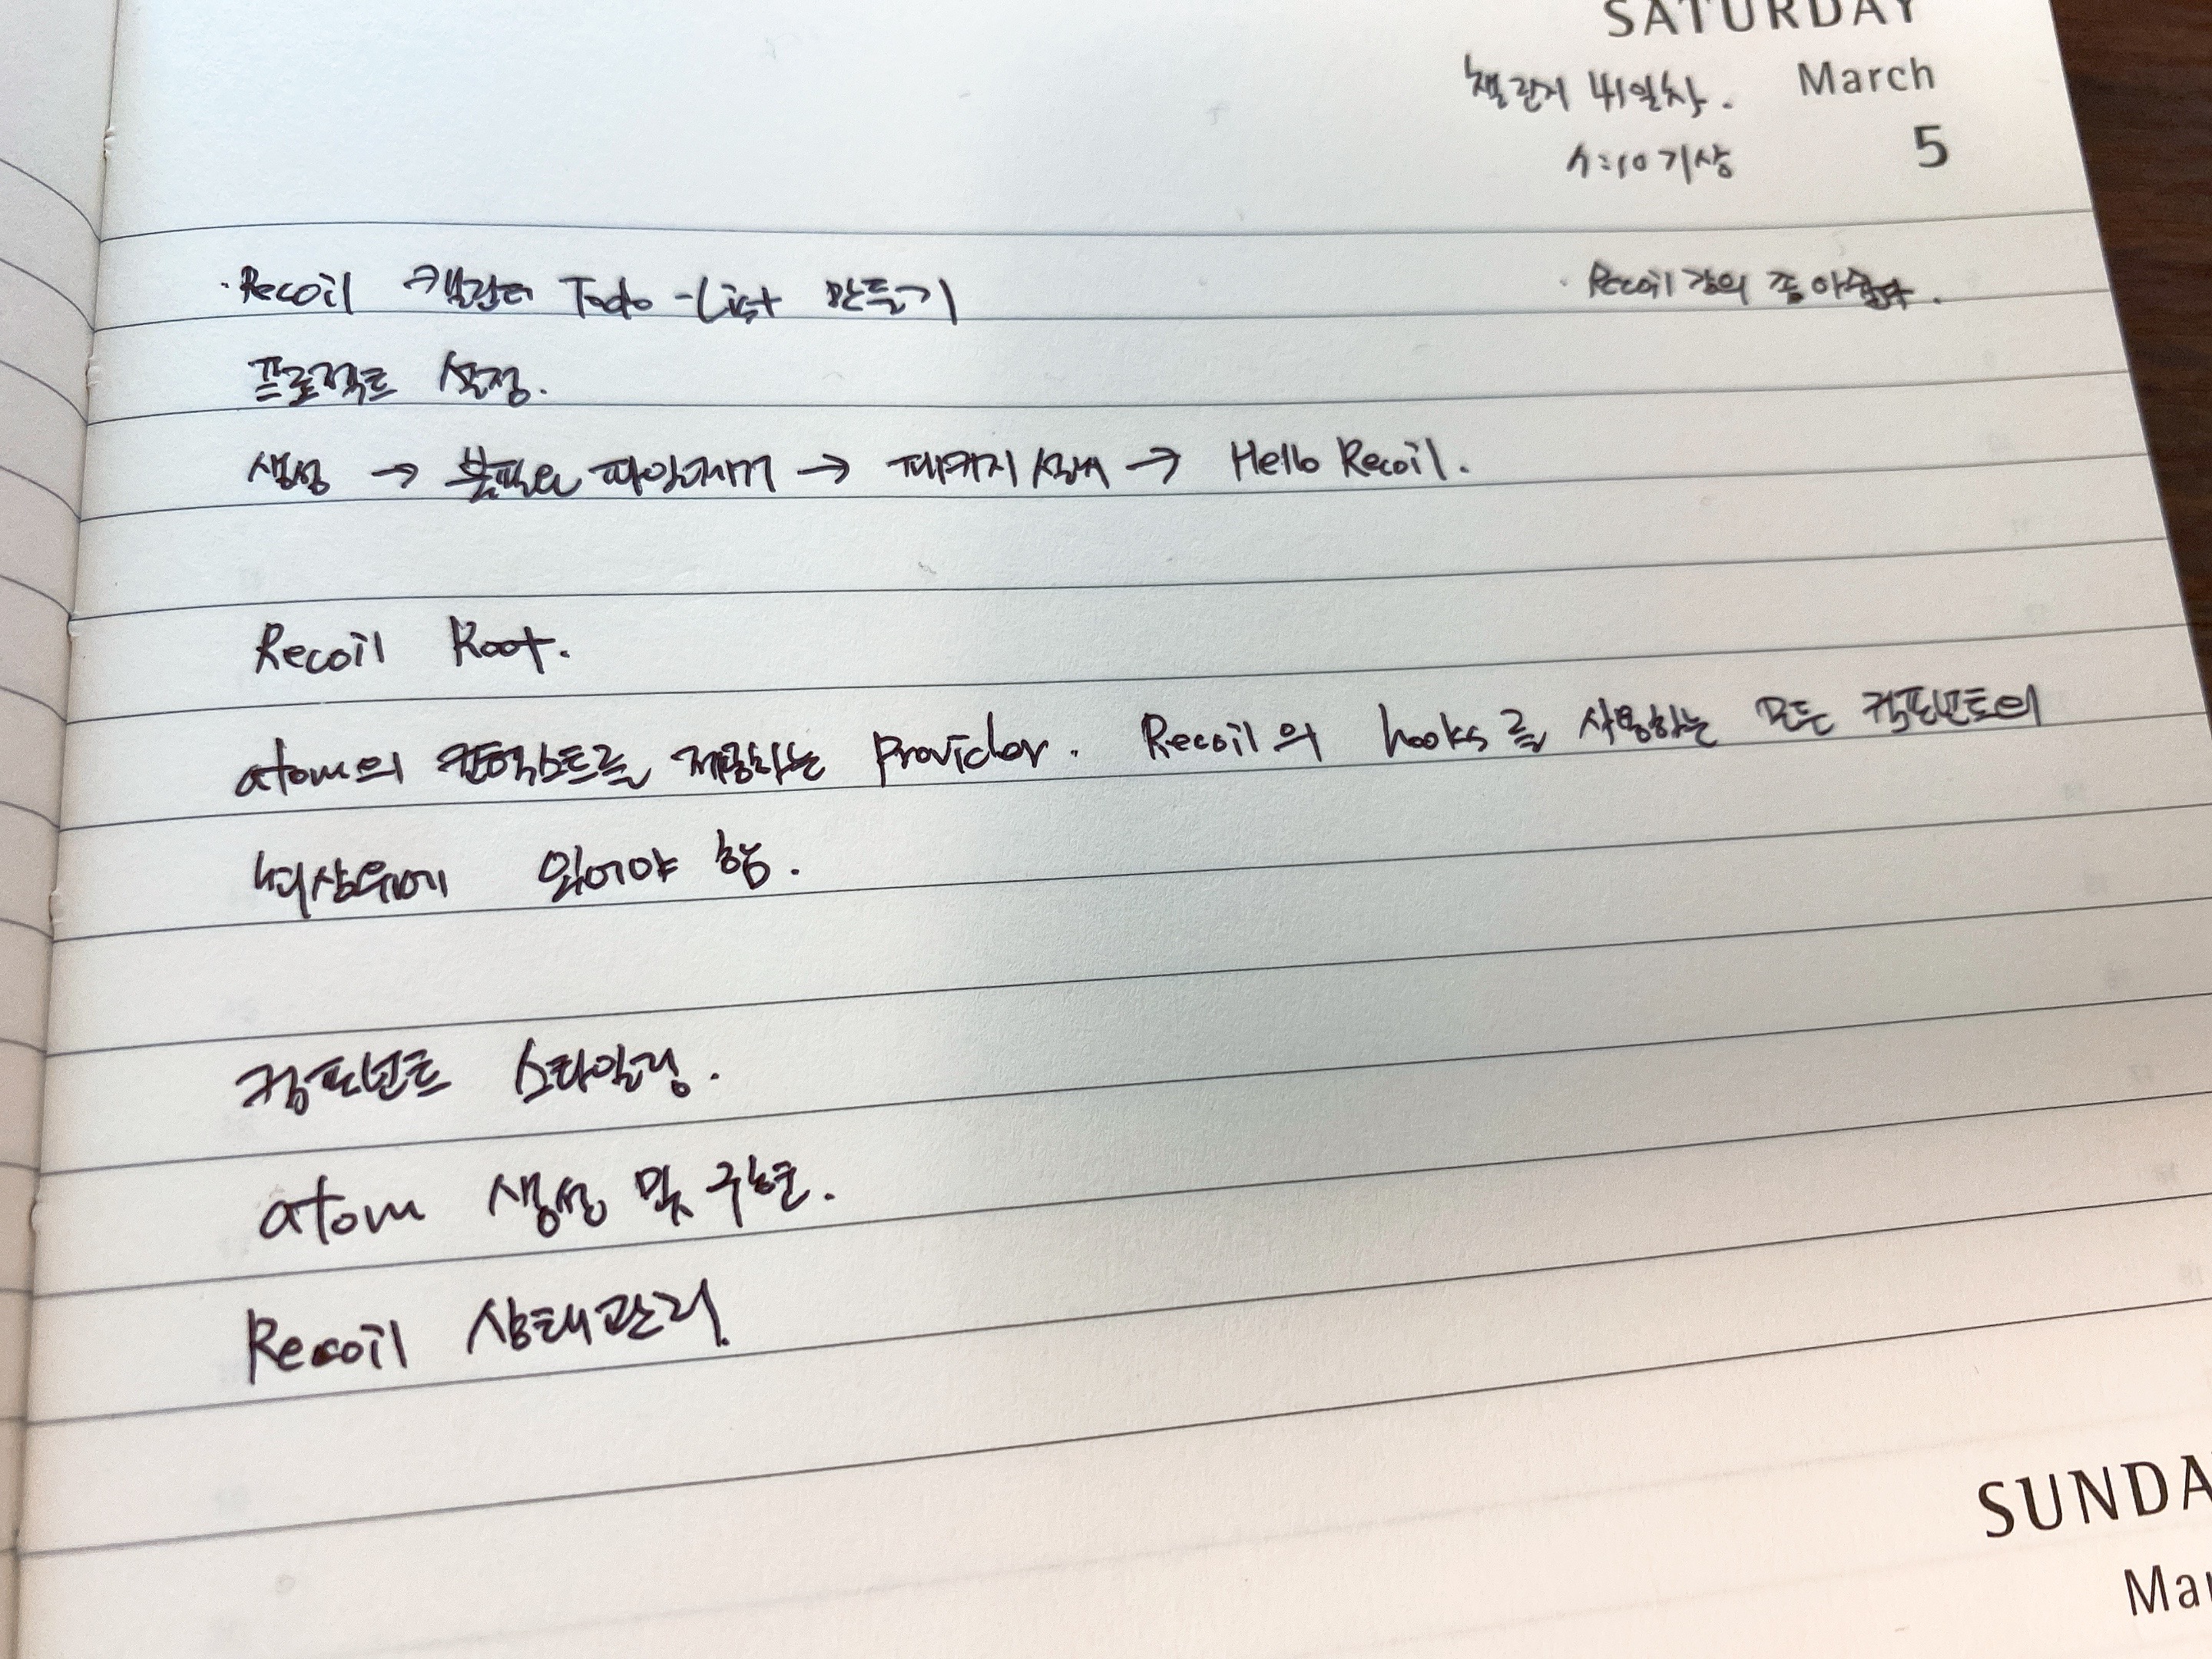 SATURDAY
챌린지 41일차. March
4:10 기상 5
· Recoil 캘린더 Todo-List 만들기
· Recoil 강의 좀 아쉽다.
프로젝트 설정.
생성 → 불필요 파일제거 → 패키지 설치 → Hello Recoil.
Recoil Root.
atom의 컨텍스트를 제공하는 provider. Recoil의 hooks를 사용하는 모든 컴포넌트의
최상위에 있어야 함.
컴포넌트 스타일링.
atom 생성 및 구현.
Recoil 상태관리.
SUNDA
Mar